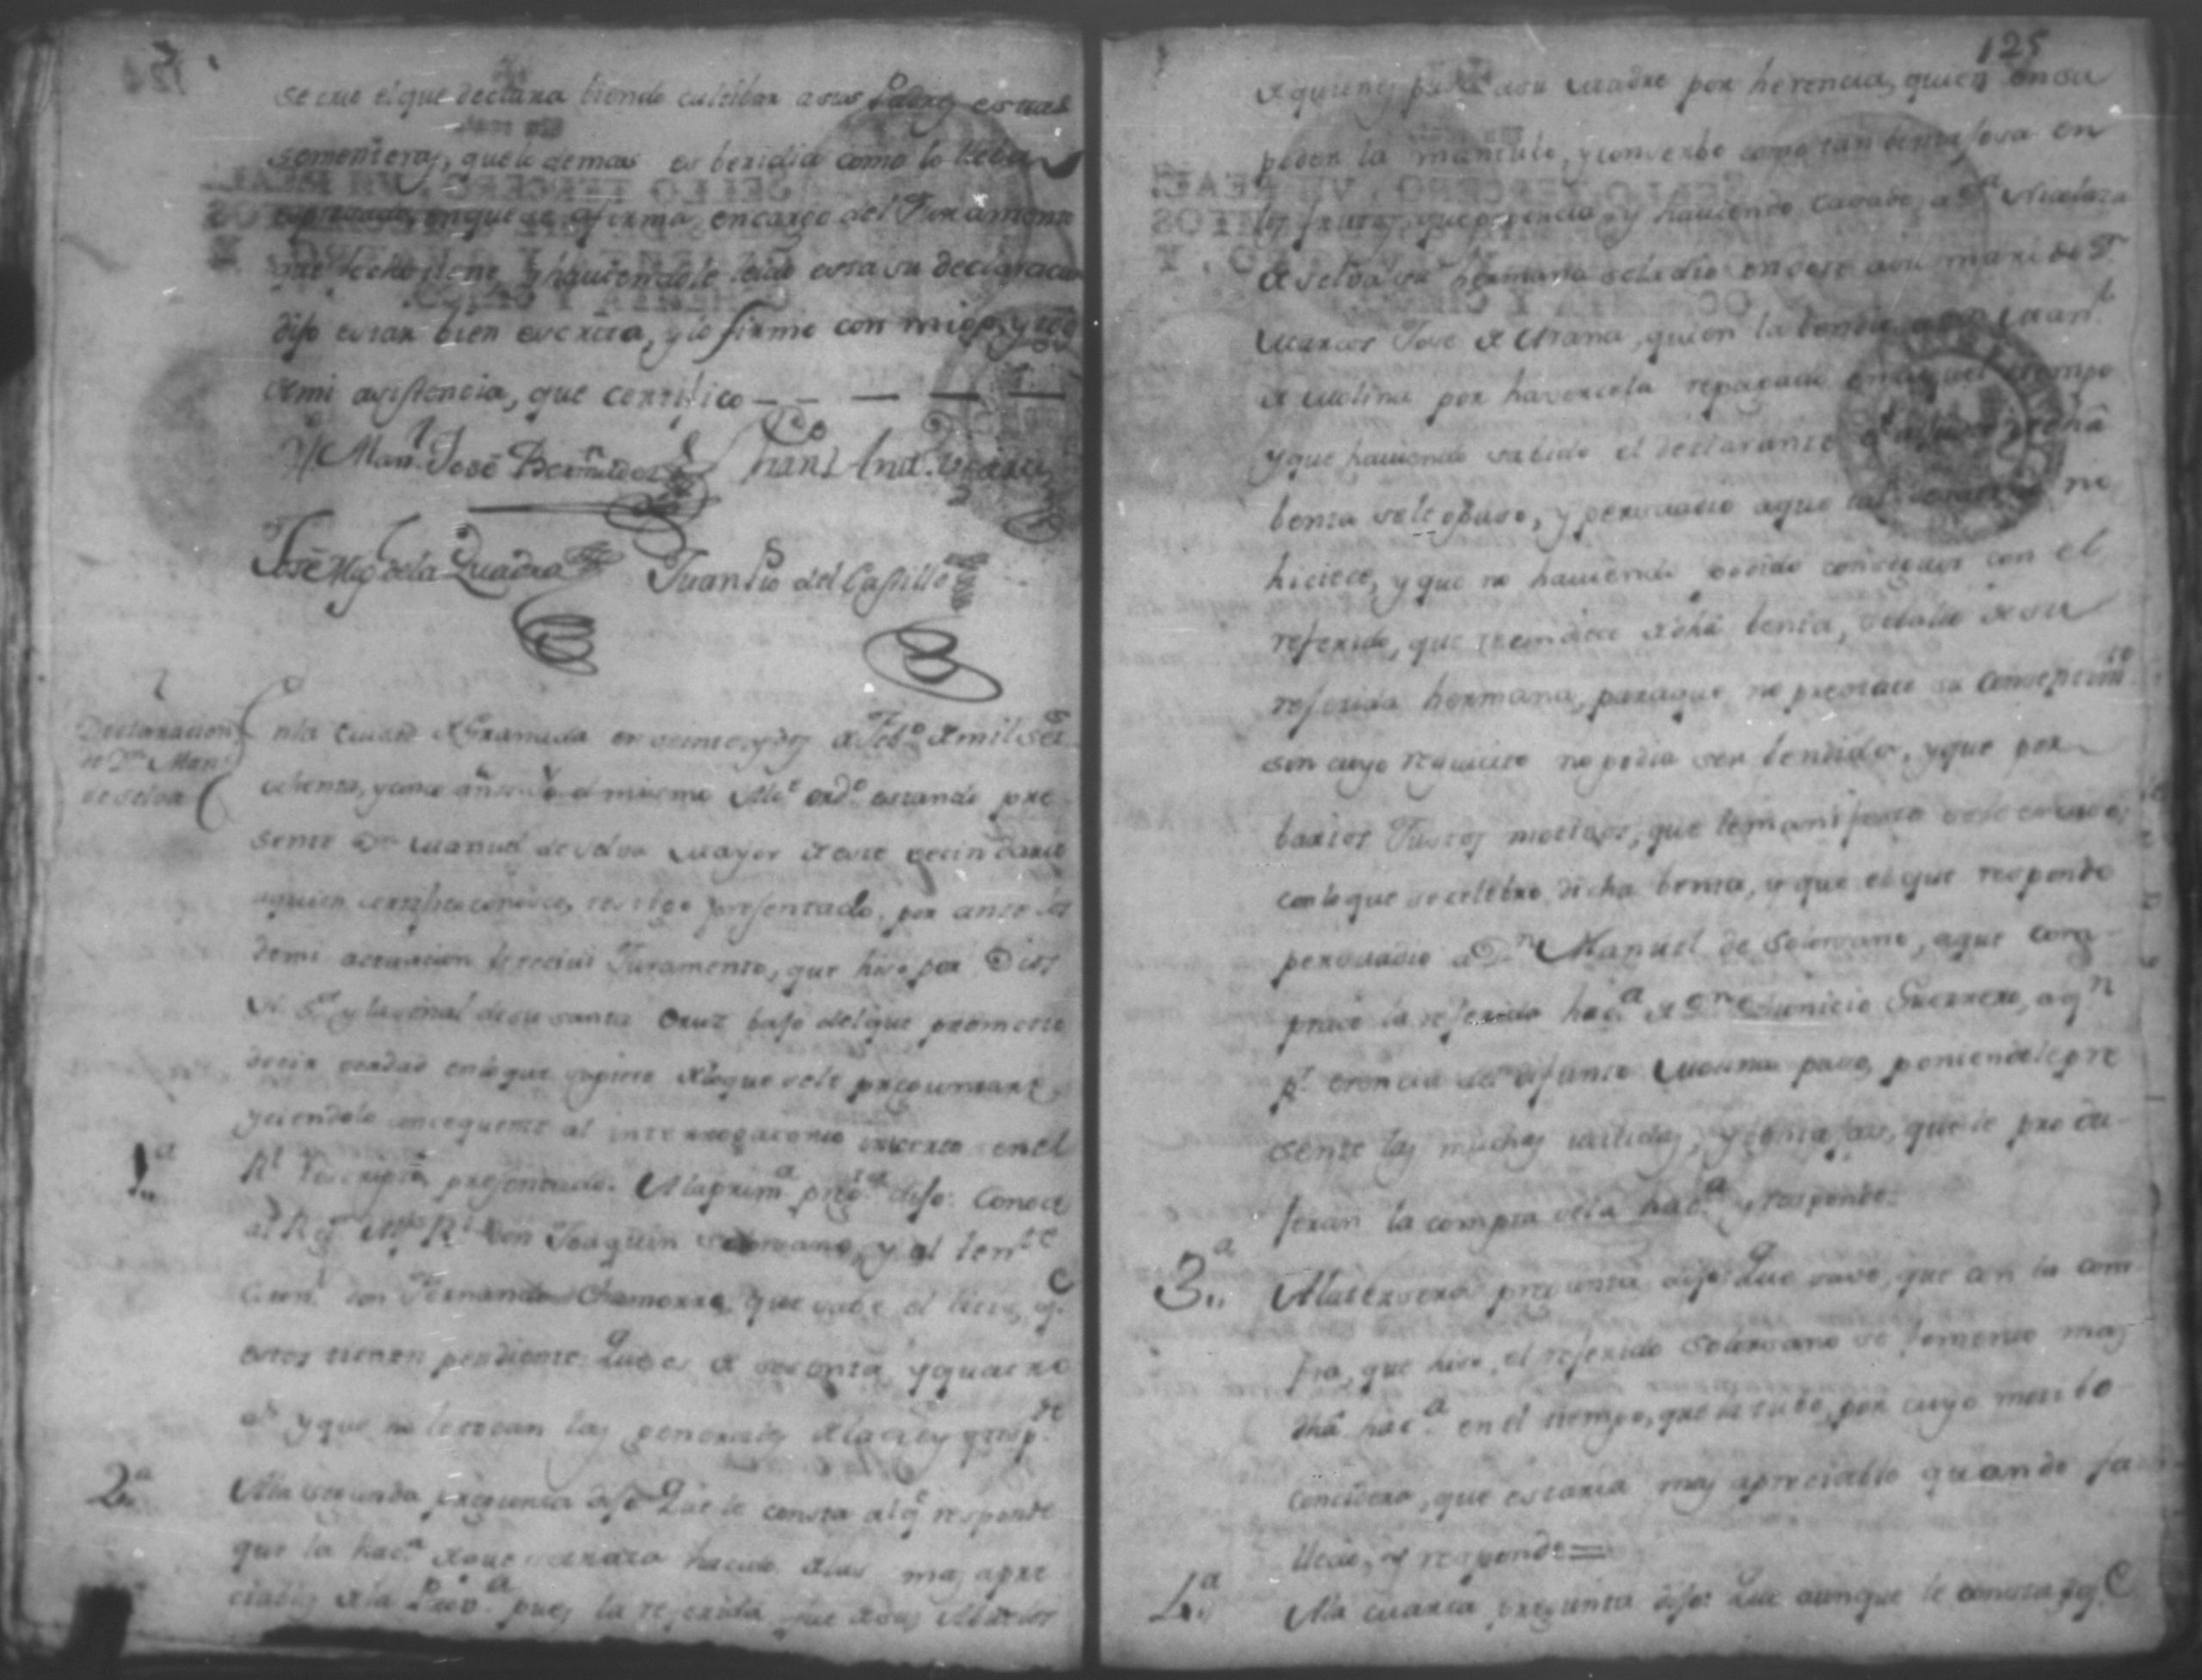 se crio el que declara biendo cultibar a sus Padres esttas
sementeras, que lo demas es beridico como lo lleba
expresado, en que se afirma en cargo del Juramento
que fecho tiene, y haviendole leido esta su declaracion
dijo estar bien escrita, y lo firmo con migo, y tºs
de mi asistencia, que certifico
Man.l José Bermudez
José Mig.l de la Quadra Juan Pio del Castillo
Declaracion de Dn Man.l de Selva
En la Ciudad de Granada en veinte y dos de Feb.o de mil Set.s
ochenta, y cinco años el mismo Al.e ord.o estando pre
sente Dn Manuel de Selva Mayor de este vecindario
a quien certifico conosco, testigo presentado, por ante los
de mi actuacion le recivi Juramento, que hiso por Dios
N. S.r y la señal de su santa Cruz bajo del que prometio
decir verdad en lo que supiere de lo que se le preguntare
y siendolo consequente al interrogatorio incerto en el
1.a
Rl rescripto presentado. A la prim.a preg.ta dijo: Conoce
al Rex.r Alf.z R.l don Joaquin Solorsano, y al ten.te
Coron.l don Fernando Chamorro, que sabe el litis, q.e
estos tienen pendiente: Que es de sesenta, y quatro
a.s y que no le tocan las generales de la Ley y resp.de
2.a
A la segunda pregunta dijo: Que le consta al q.e responde
que la hac.a de que se trata ha sido de las mas apre
ciables de la Prov.a pues la referida fue de sus Abuelos
125
de quienes paso a su Madre por herencia, quien en su
poder la mantubo, y conserbo como tan bentajosa en
los frutos, que producia, y haviendo casado a D.a Nicolasa
de Selva su hermana se la dio en dote a su marido D.n
Marcos Jose de Arana, quien la bendio a Dn Man.l
de Molina por haversela reparado en aquel tiempo
y que haviendo sabido el declarante dha
benta se le opuso, y persuadio a que tal no
hiciese, y que no haviendo podido conseguir con el
referido, que recindiese de dha benta, se balio de su
referida hermana, para que no prestace su consentim.to
sin cuyo requicito no podia ser bendida, y que por
barios Justos motibos, que le manifesto se le escuso,
con lo que se celebro dicha benta, y que el que responde
persuadio a D.n Manuel de Solorsano, a que com
prace la referida hac.a de D.n Dionicio Guerrero, a q.n
p.r erencia del difunto Molina paso, poniendole pre
sente las muchas utilidades, y bentajas, que le produ
jeran la compra de la hac.a y responde:
3.a
A la tersera pregunta dijo: Que save, que con la com
pra, que hiso el referido Solorsano se fomento mas
dha hac.a en el tiempo, que la tubo, por cuyo motibo
concidera, que estaria mas apreciable quando fa
llecio, y responde =
4.a
A la cuarta pregunta dijo: Que aunque le consta, q.e